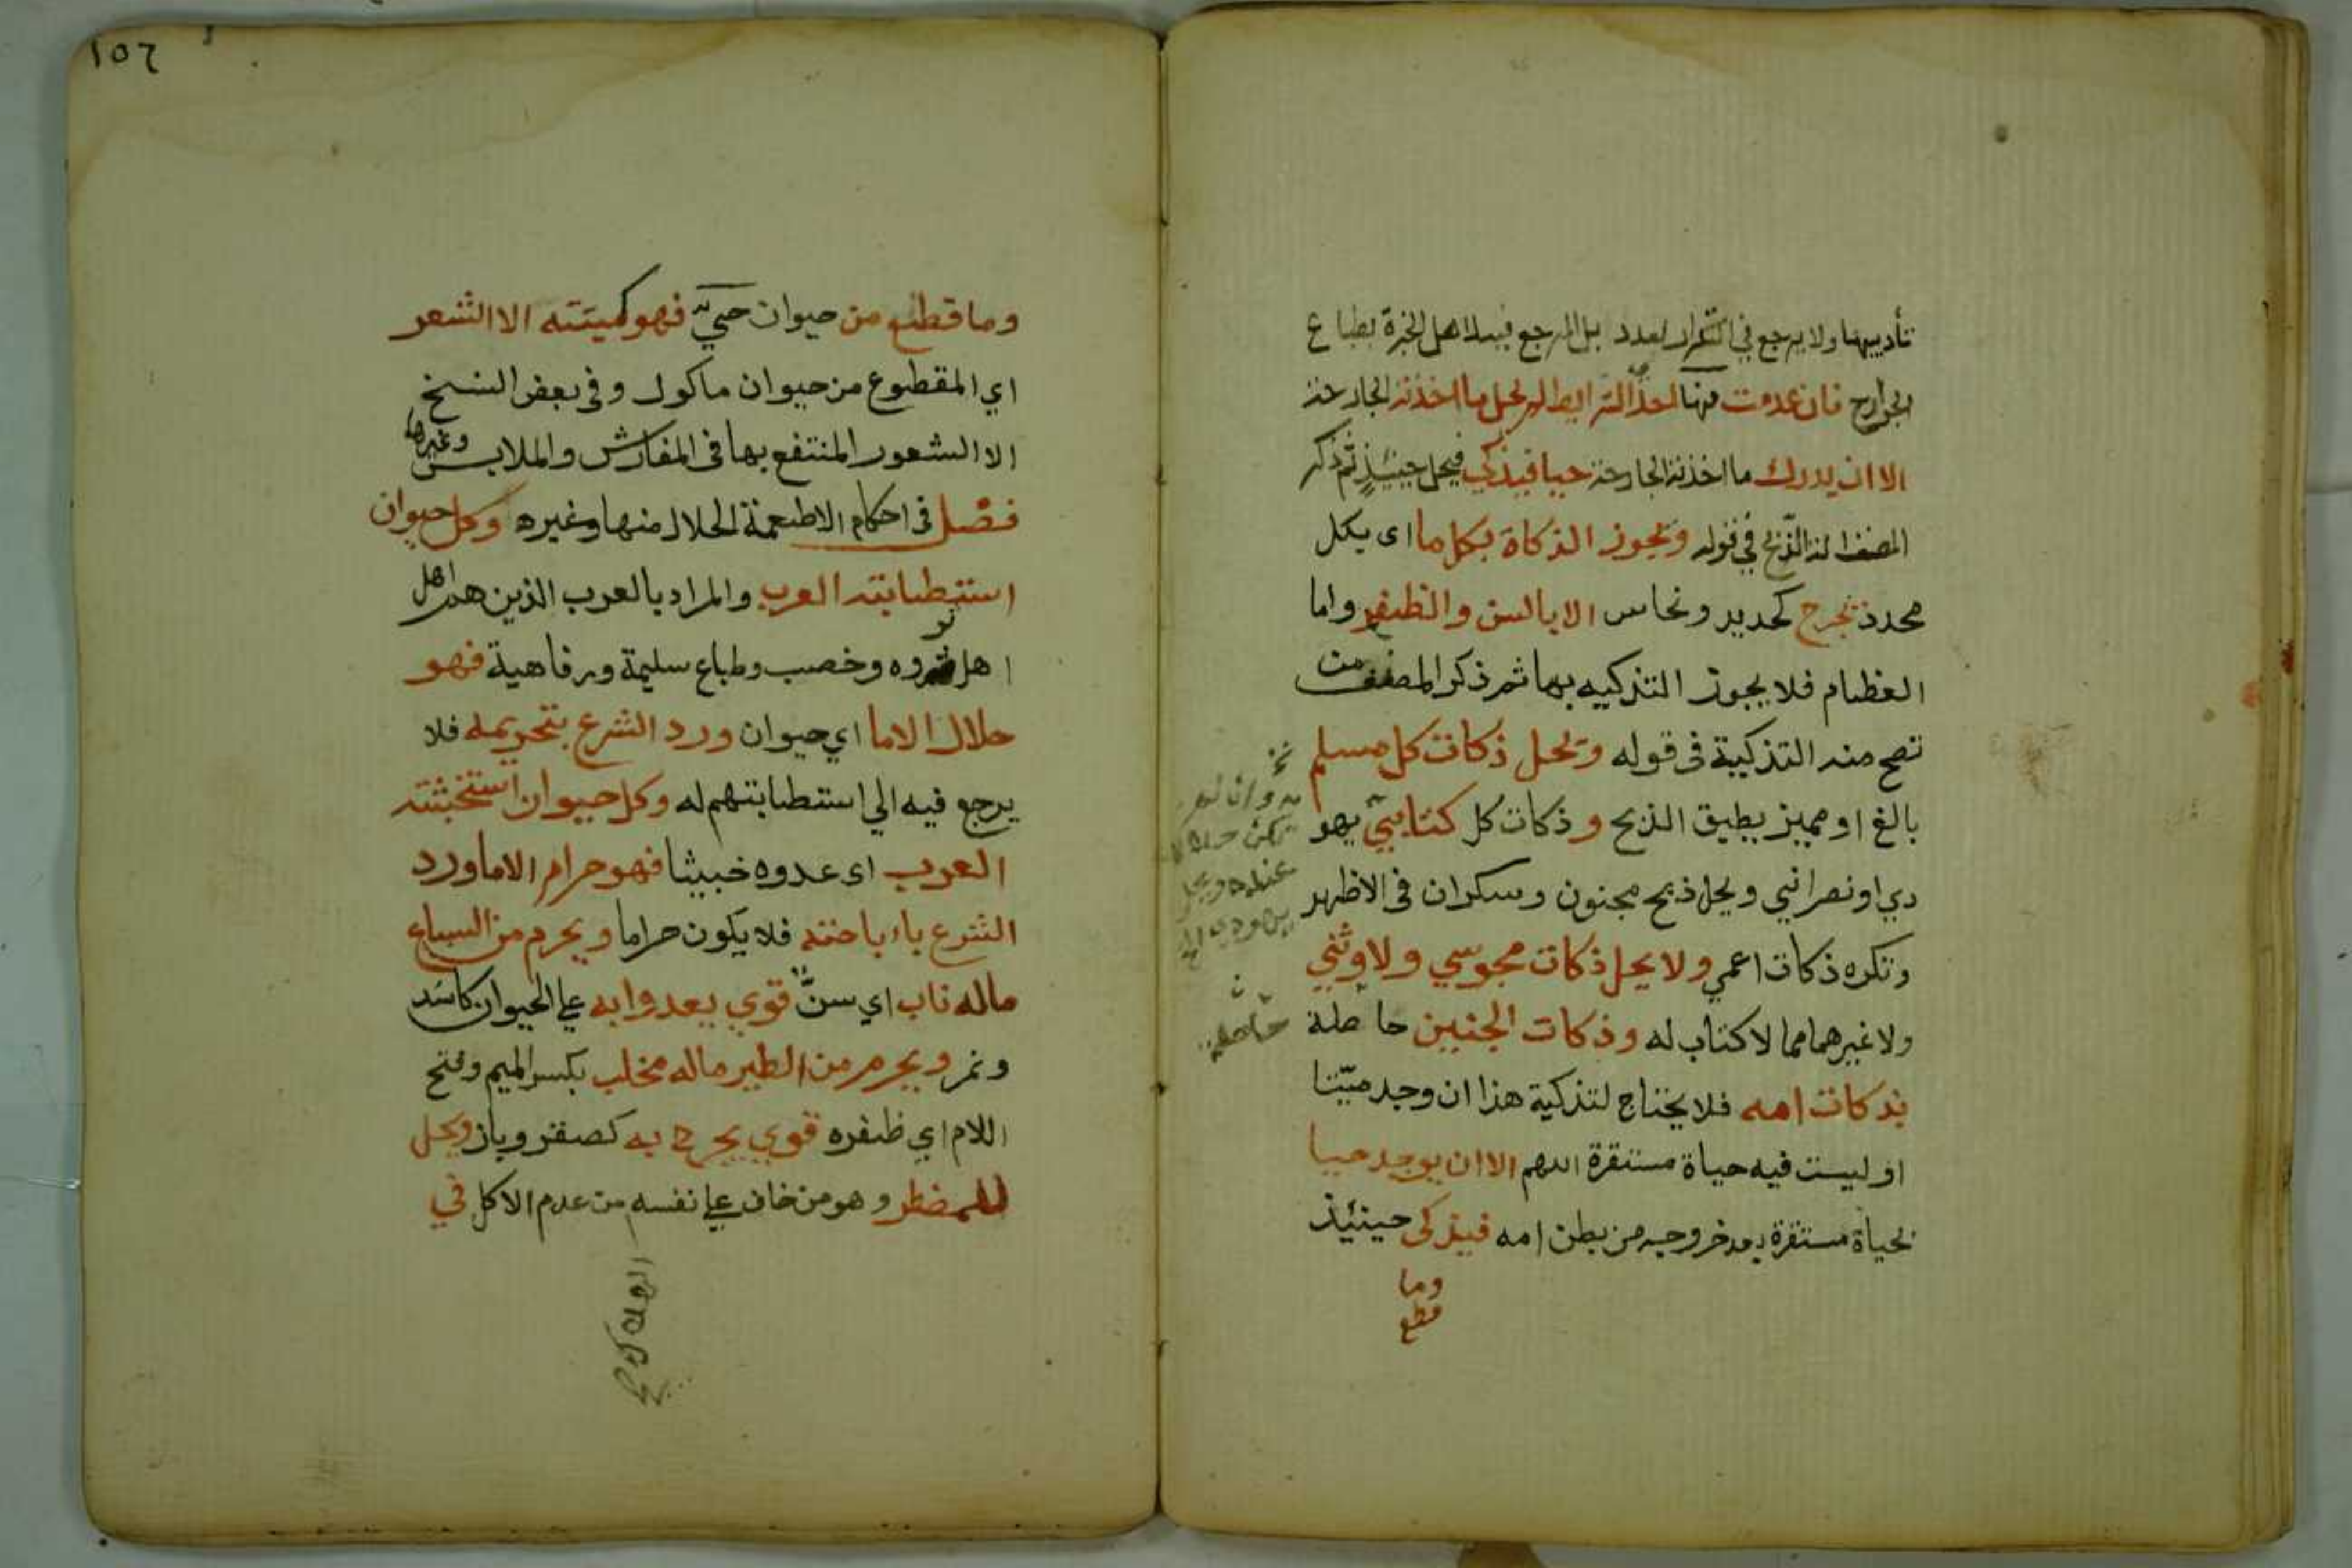 تأديبها ولا يرجع في التكرار لعدد بل المرجع فيه لاهل الخبرة بطباع
الجوارح فان عدمت منها احد الشرايط لم يحل ما اخذته الجارحة
الا ان يدرك ما اخذته الجارحة حيا فيذكي فيحل حينئذ ثم ذكر
المصنف الة الذبح في قوله وتجوز الذكاة بكل ما اى بكل
محدد تجرح كحديد ونحاس الا بالسن والظفر واما
العظام فلا يجوز التذكيه بها ثم ذكر المصنف من
تصح منه التذكية فى قوله وتحل ذكات كل مسلم
بالغ او مميز يطيق الذبح وذكات كل كتابي يهو
دي او نصراني ويحل ذبح مجنون وسكران فى الاظهر
وتكره ذكات اعمي ولا يحل ذكات مجوسي ولا وثني
ولا غيرهما مما لا كتاب له وذكات الجنين حاصلة
بذكات امه فلا يحتاج لتذكية هذا ان وجد ميتا
او ليست فيه حياة مستقرة اللهم الا ان يوجد حيا
لحياة مستقرة بعد خروجه من بطن امه فيذكى حينئذ
وما
قطع
حاصلة
١٥٦
وما قطع من حيوان حي فهو كميتته الا الشعر
اي المقطوع من حيوان ماكول وفى بعض النسخ
الا الشعور المنتفع بها فى المفارش والملابس وغيرها
فصل فى احكام الاطعمة الحلال منها وغيره وكل حيوان
استطابته العرب والمراد بالعرب الذين هم اهل
اهل ثروه وخصب وطباع سليمة ورفاهية فهو
حلال الا ما اي حيوان ورد الشرع بتحريمه فلا
يرجع فيه الي استطابتهم له وكل حيوان استخبثته
العرب اى عدوه خبيثا فهو حرام الا ما ورد
الشرع باء باحته فلا يكون حراما ويحرم من السباع
ماله ناب اي سن قوي يعدوا به علي الحيوان كاسد
ونمر ويحرم من الطير ماله مخلب بكسر الميم وفتح
اللام اي ظفره قوي يجرح به كصقر وباز ويحل
للمضطر وهو من خاف علي نفسه من عدم الاكل في